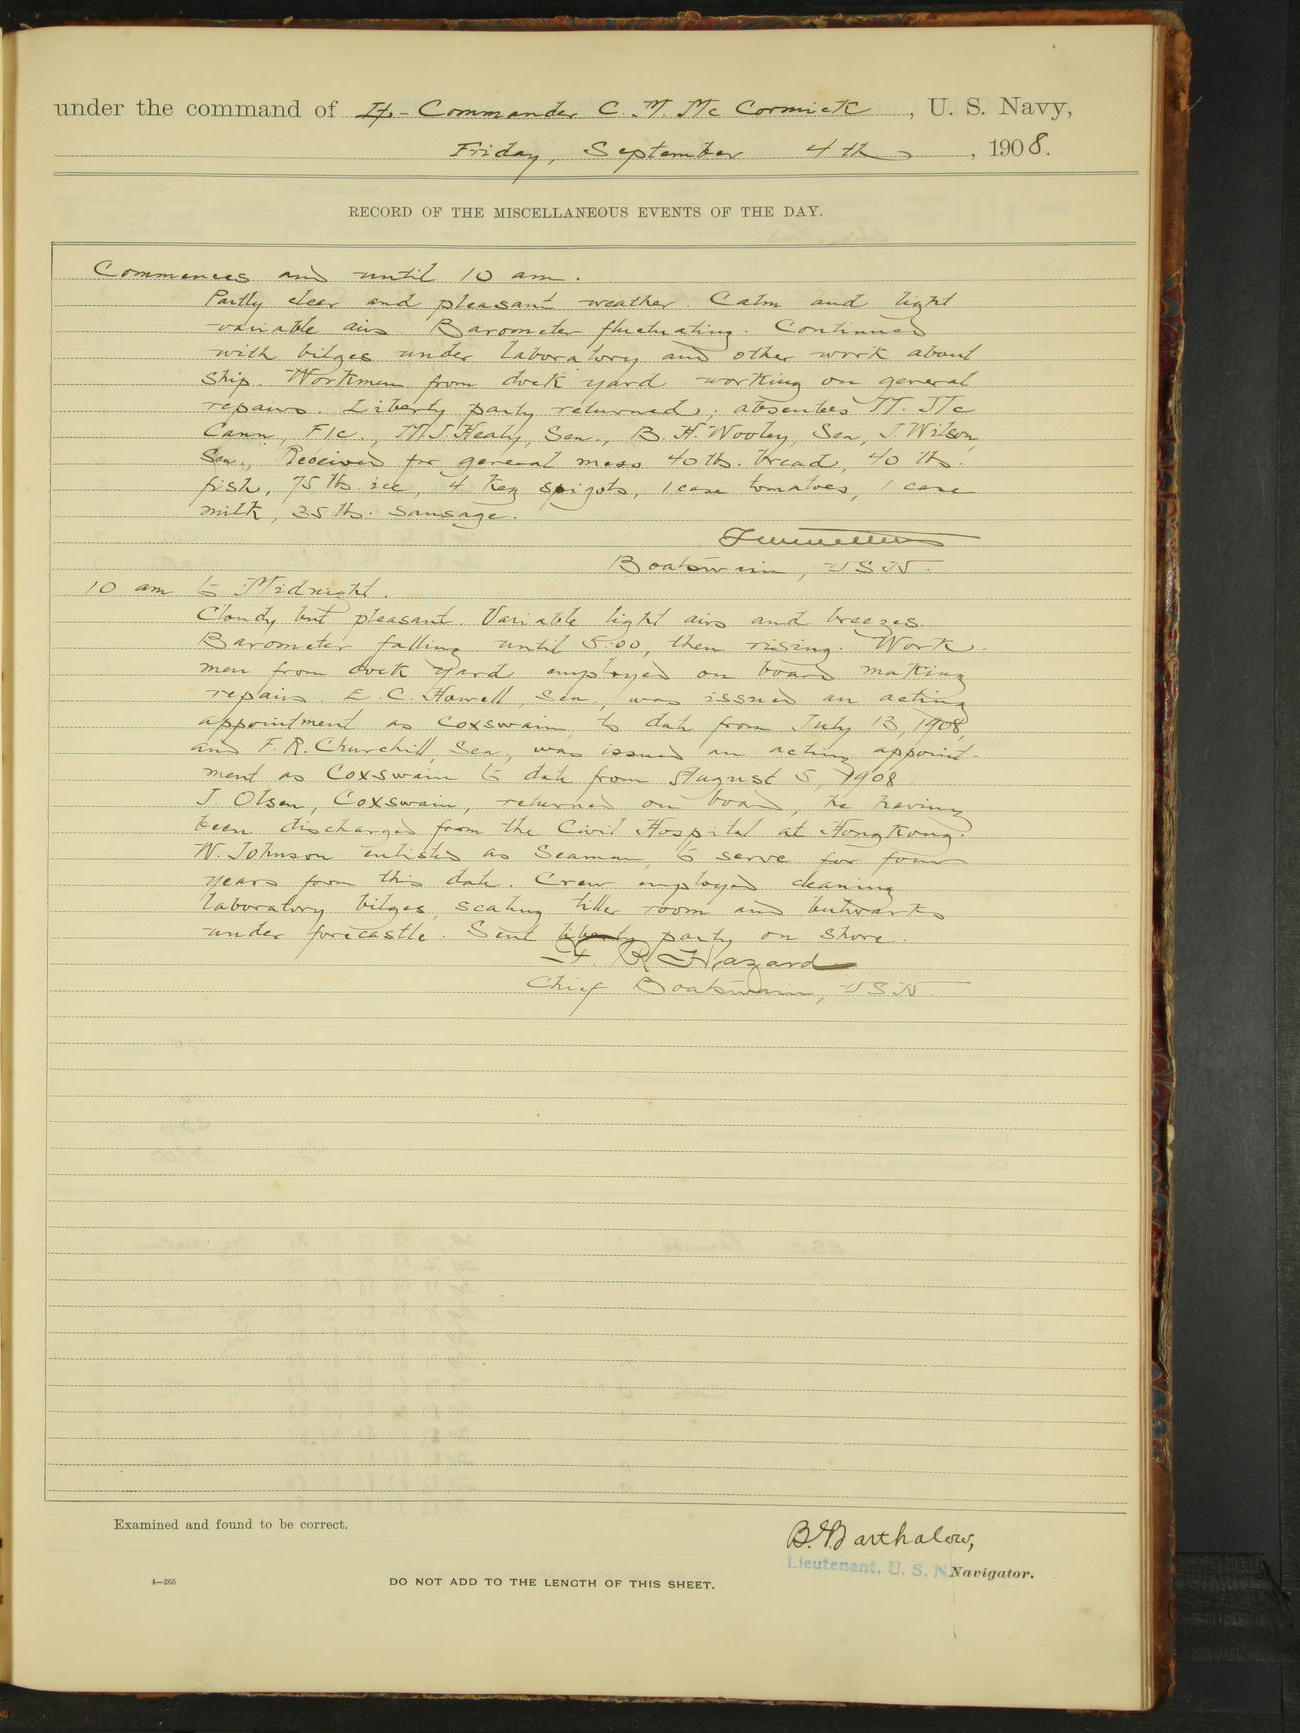 under the command of Lt-Commander C. M. Mc Cormick, U. S. Navy,
Friday, September 4th, 1908.
RECORD OF THE MISCELLANEOUS EVENTS OF THE DAY.
Commences and until 10 am.
Partly clear and pleasant weather. Calm and light
variable airs. Barometer fluctuating. Continued
with bilges under laboratory and other work about
ship. Workmen from dock yard working on general
repairs. Liberty party returned; absentees Mc
Cann, F1c., M. J. Healy, Sea., B. H. Wooley, Sea, J. Wilson,
Sea., Received for general mess 40 lbs. bread, 40 lbs.
fish, 75 lbs ice, 4 keg spigots, 1 case tomatoes, 1 case
milk, 35 lbs. sausage.
Boatswain, USN.
10 am to Midnight.
Cloudy but pleasant. Variable light airs and breezes.
Barometer falling until 5:00, then rising. Work-
men from dock yard employed on board making
repairs E. C. Howell, Sea., was issued an acting
appointment as Coxswain, to date from July 13, 1908,
and F. R. Churchill, Sea, was issued an acting appoint-
ment as Coxswain to date from August 5, 1908
J. Olsen, Coxswain, returned on board, he having
been discharged from the Civil Hospital at HongKong.
N. Johnson enlisted as Seaman, to serve for four
years from this date. Crew employed cleaning
laboratory bilges, scaling tiller room and bulwarks
under forecastle. Sent liberty party on shore.
F. R. Hazard
Chief Boatswain, USN.
Examined and found to be correct.
B. Barthalow,
Lieutenant, U. S. N. Navigator.
4—265
DO NOT ADD TO THE LENGTH OF THIS SHEET.